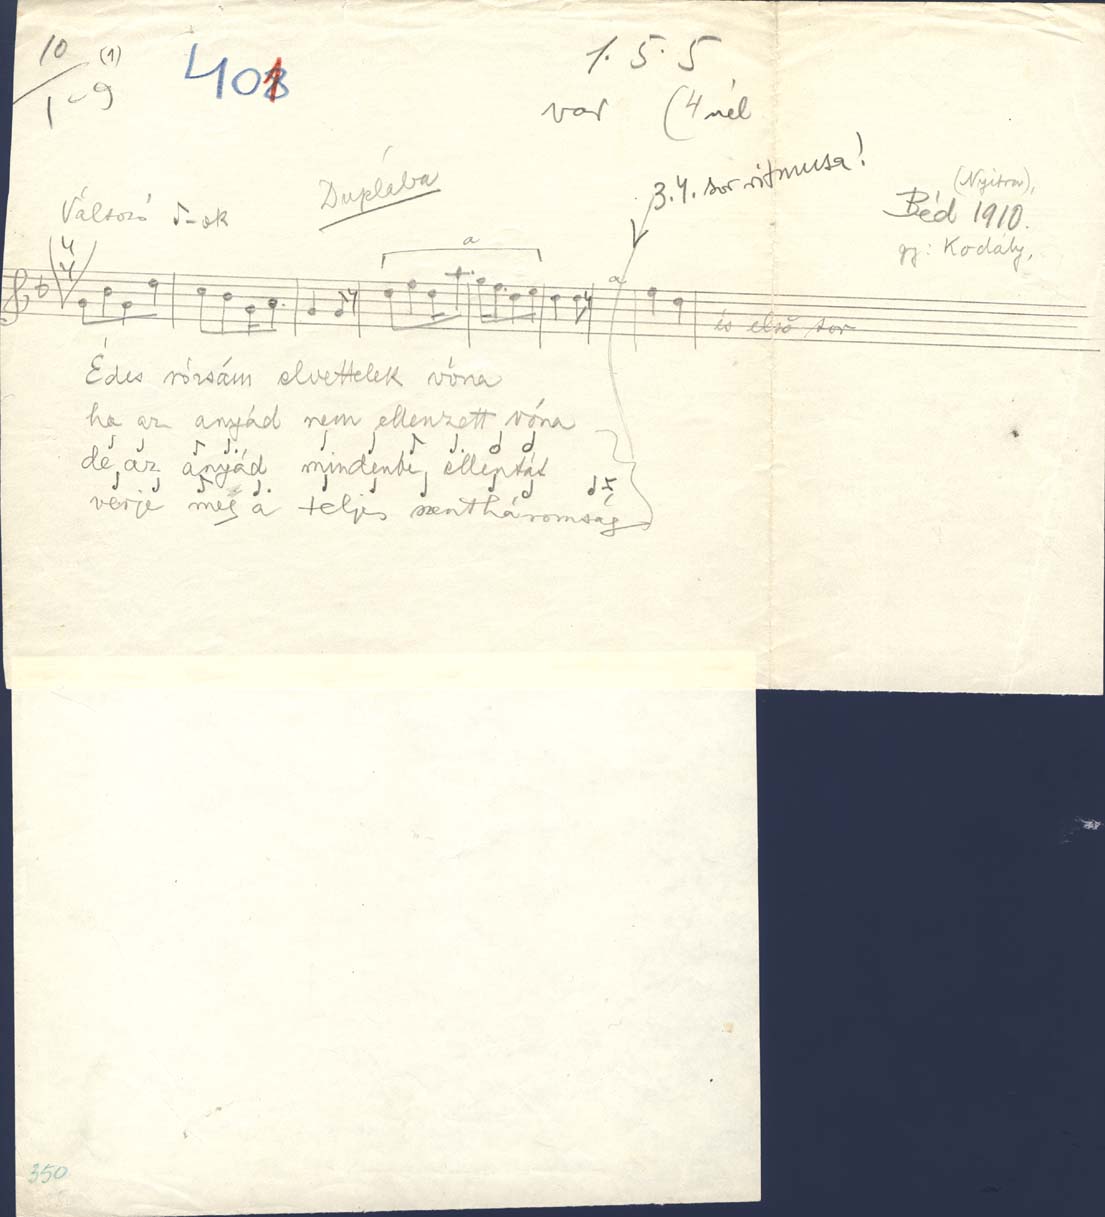 10 (1)
1-9
401
1. 5. 5
var (4 nél
Duplába
3.4. sor ritmusa!
(Nyitra),
Béd 1910.
gy: Kodály,
Változó ♪-ok
4
4
a
a
és első sor
Édes rózsám elvettelek vóna
ha az anyád nem ellenzett vóna
de az anyád mindenbe,
verje meg a teljes szentháromság
350